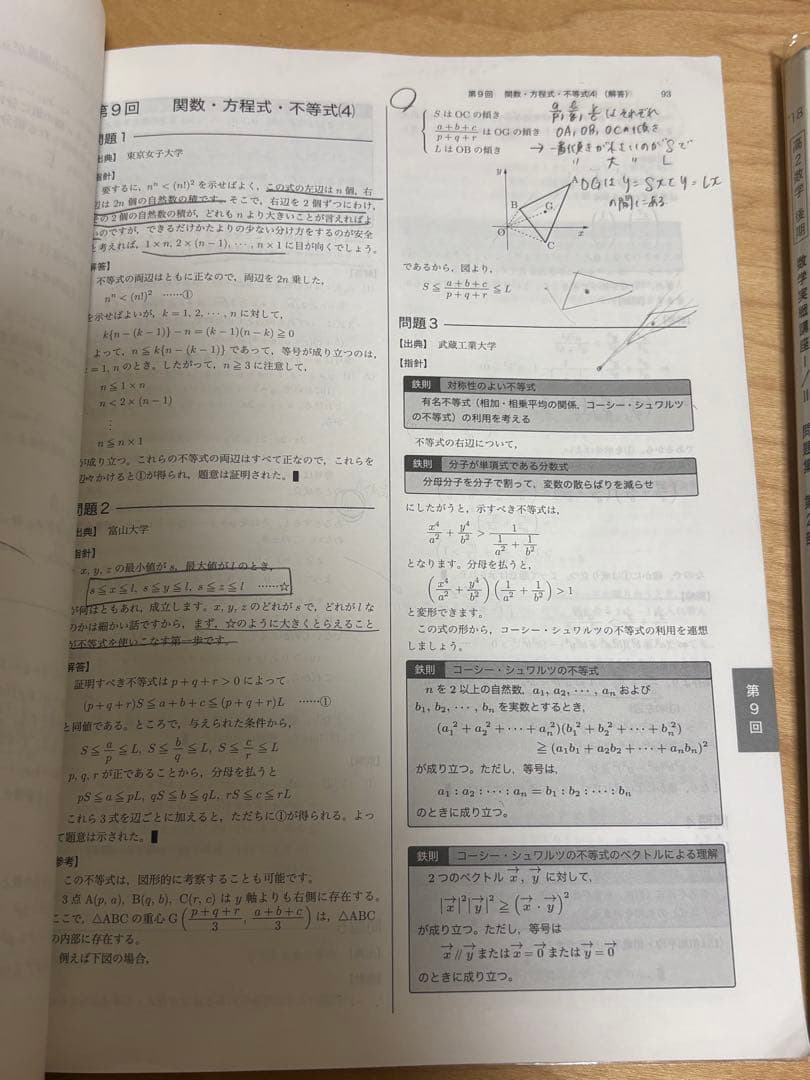 第9回 関数・方程式・不等式(4)
問題1
出典】 東京女子大学
指針】
要するに，nⁿ < (n!)² を示せばよく，この式の左辺は n 個，右
辺は 2n 個の自然数の積です。そこで，右辺を 2 個ずつにわけ，
の 2 個の自然数の積が，どれも n より大きいことが言えればよ
いのですが，できるだけかたよりの少ない分け方をするのが安全
と考えれば，1 × n, 2 × (n − 1), ⋯, n × 1 に目が向くでしょう。
解答】
不等式の両辺はともに正なので，両辺を 2n 乗した，
nⁿ < (n!)² ……①
を示せばよいが，k = 1, 2, ⋯, n に対して，
k{n − (k − 1)} − n = (k − 1)(n − k) ≧ 0
よって，n ≦ k{n − (k − 1)} であって，等号が成り立つのは，
= 1, n のとき。したがって，n ≧ 3 に注意して，
n ≦ 1 × n
n < 2 × (n − 1)
⋮
n ≦ n × 1
が成り立つ。これらの不等式の両辺はすべて正なので，これらを
辺々かけると①が得られ，題意は証明された。
問題2
出典】 富山大学
指針】
x, y, z の最小値が s，最大値が l のとき，
s ≦ x ≦ l, s ≦ y ≦ l, s ≦ z ≦ l ……☆
が何はともあれ，成立します。x, y, z のどれが s で，どれが l な
のかは細かい話ですから，まず，☆のように大きくとらえること
が不等式を使いこなす第一歩です。
解答】
証明すべき不等式は p + q + r > 0 によって
(p + q + r)S ≦ a + b + c ≦ (p + q + r)L ……①
と同値である。ところで，与えられた条件から，
S ≦ a/p ≦ L, S ≦ b/q ≦ L, S ≦ c/r ≦ L
p, q, r が正であることから，分母を払うと
pS ≦ a ≦ pL, qS ≦ b ≦ qL, rS ≦ c ≦ rL
これら 3 式を辺ごとに加えると，ただちに①が得られる。よっ
て題意は示された。
参考】
この不等式は，図形的に考察することも可能です。
3 点 A(p, a), B(q, b), C(r, c) は y 軸よりも右側に存在する。
ここで，△ABC の重心 G ( (p + q + r)/3 , (a + b + c)/3 ) は，△ABC
の内部に存在する。
例えば下図の場合，
第9回 関数・方程式・不等式(4) (解答) 93
S は OC の傾き
(a + b + c)/(p + q + r) は OG の傾き
L は OB の傾き
はそれぞれ
OA, OB, OCの傾き
→ 一番傾きが小さいのがSで
〃 大 〃 L
OGは y=Sxとy=Lx
の間にある
y
A
B
G
O
C
x
であるから，図より，
S ≦ (a + b + c)/(p + q + r) ≦ L
問題3
【出典】 武蔵工業大学
【指針】
鉄則 対称性のよい不等式
有名不等式（相加・相乗平均の関係，コーシー・シュワルツ
の不等式）の利用を考える
不等式の右辺について，
鉄則 分子が単項式である分数式
分母分子を分子で割って，変数の散らばりを減らせ
にしたがうと，示すべき不等式は，
x⁴/a² + y⁴/b² > 1/(1/a² + 1/b²)
となります。分母を払うと，
(x⁴/a² + y⁴/b²)(1/a² + 1/b²) > 1
と変形できます。
この式の形から，コーシー・シュワルツの不等式の利用を連想
しましょう。
鉄則 コーシー・シュワルツの不等式
n を 2 以上の自然数，a₁, a₂, ⋯, aₙ および
b₁, b₂, ⋯, bₙ を実数とするとき，
(a₁² + a₂² + ⋯ + aₙ²)(b₁² + b₂² + ⋯ + bₙ²)
≧ (a₁b₁ + a₂b₂ + ⋯ + aₙbₙ)²
が成り立つ。ただし，等号は，
a₁ : a₂ : ⋯ : aₙ = b₁ : b₂ : ⋯ : bₙ
のときに成り立つ。
鉄則 コーシー・シュワルツの不等式のベクトルによる理解
2 つのベクトル x⃗, y⃗ に対して，
|x⃗|²|y⃗|² ≧ (x⃗ · y⃗)²
が成り立つ。ただし，等号は
x⃗ // y⃗ または x⃗ = 0⃗ または y⃗ = 0⃗
のときに成り立つ。
第9回
高2数学 後期